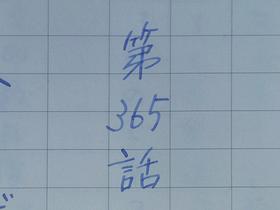 第365話